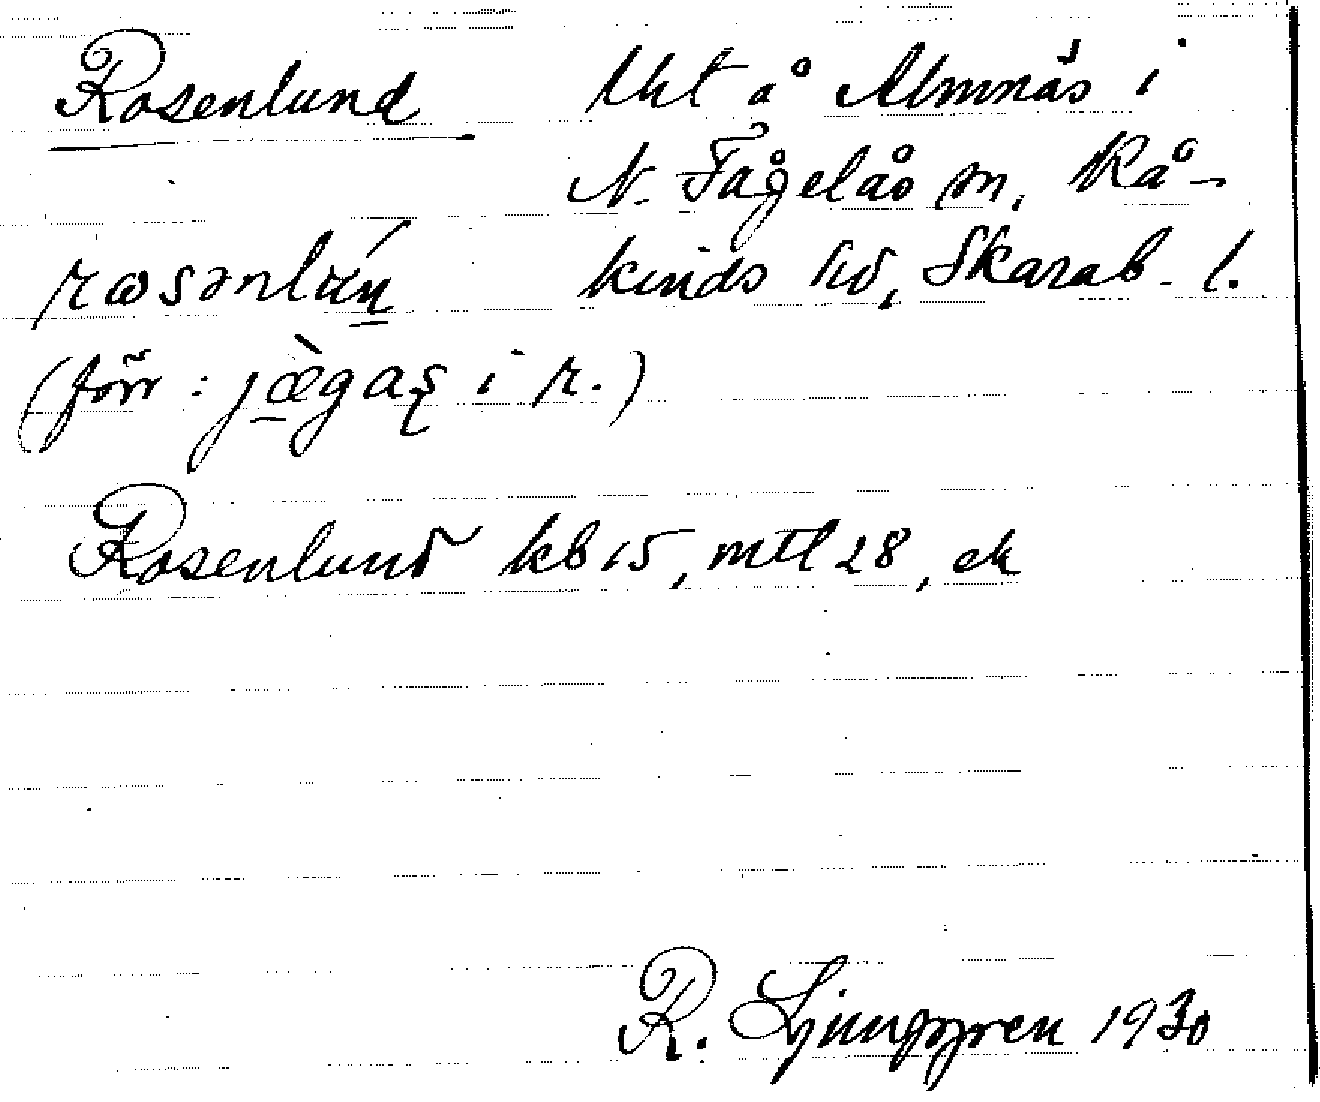 Rosenlund lht å Almnäs i
N. Fågelås sn, Kå-
kinds hd, Skarab. l.
rosənlún
(förr: jægaş i r.)
Rosenlund kb 15, mtl 28, ek
R. Ljunggren 1930